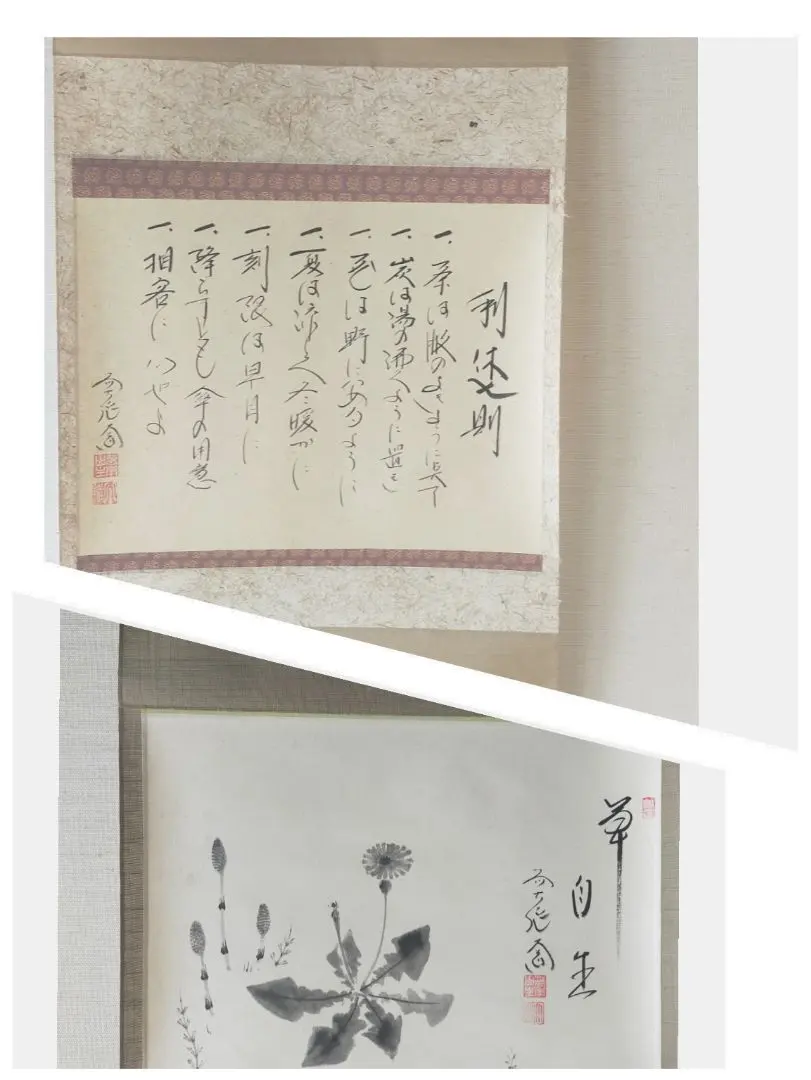 利休七則
一、茶は服のよきように点て
一、炭は湯の沸くように置き
一、花は野にあるように
一、夏は涼しく冬暖かに
一、刻限は早目に
一、降らずとも傘の用意
一、相客に心せよ
草自生